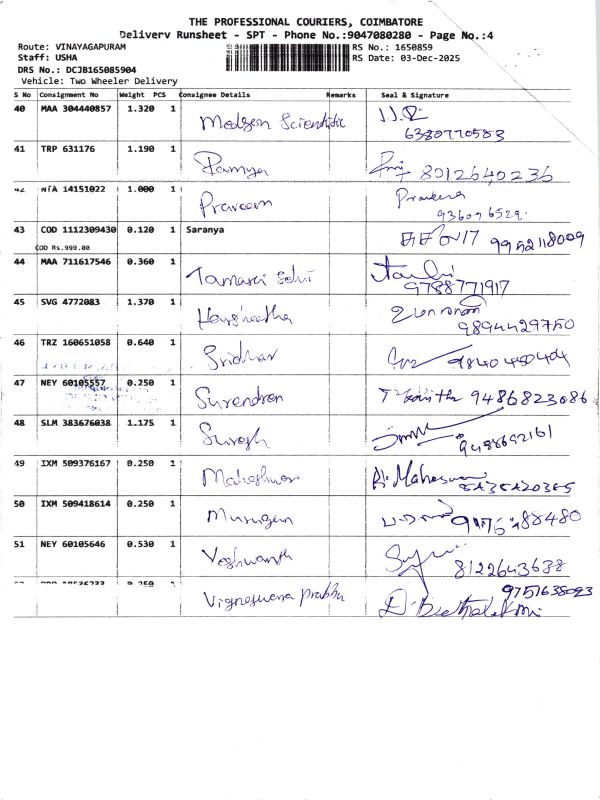 THE PROFESSIONAL COURIERS, COIMBATORE
Delivery Runsheet - SPT - Phone No.:9047080280 - Page No.:4
Route: VINAYAGAPURAM
RS No.: 1650859
Staff: USHA
RS Date: 03-Dec-2025
DRS No.: DCJB165085904
Vehicle: Two Wheeler Delivery
S No Consignment No Weight PCS Consignee Details Remarks Seal & Signature
40 MAA 304440857 1.320 1 Medgen Scientific
6380770583
41 TRP 631176 1.190 1 Ramya 8012640236
42 NTA 14151022 1.000 1 Praveen
43 COD 1112309430 0.120 1 Saranya 9952118009
COD Rs.999.00
44 MAA 711617546 0.360 1 Tamarai Selvi
9788771917
45 SVG 4772083 1.370 1 Harshretha
9894429750
46 TRZ 160651058 0.640 1 Sridhar
47 NEY 60105557 0.250 1 Surendren 9486823086
48 SLM 383676038 1.175 1 Suresh
49 IXM 509376167 0.250 1 Maheshwari
50 IXM 509418614 0.250 1 Murugan
51 NEY 60105646 0.530 1 Yeshwanth
8122643638
Vigneswena prabhu 9751638093